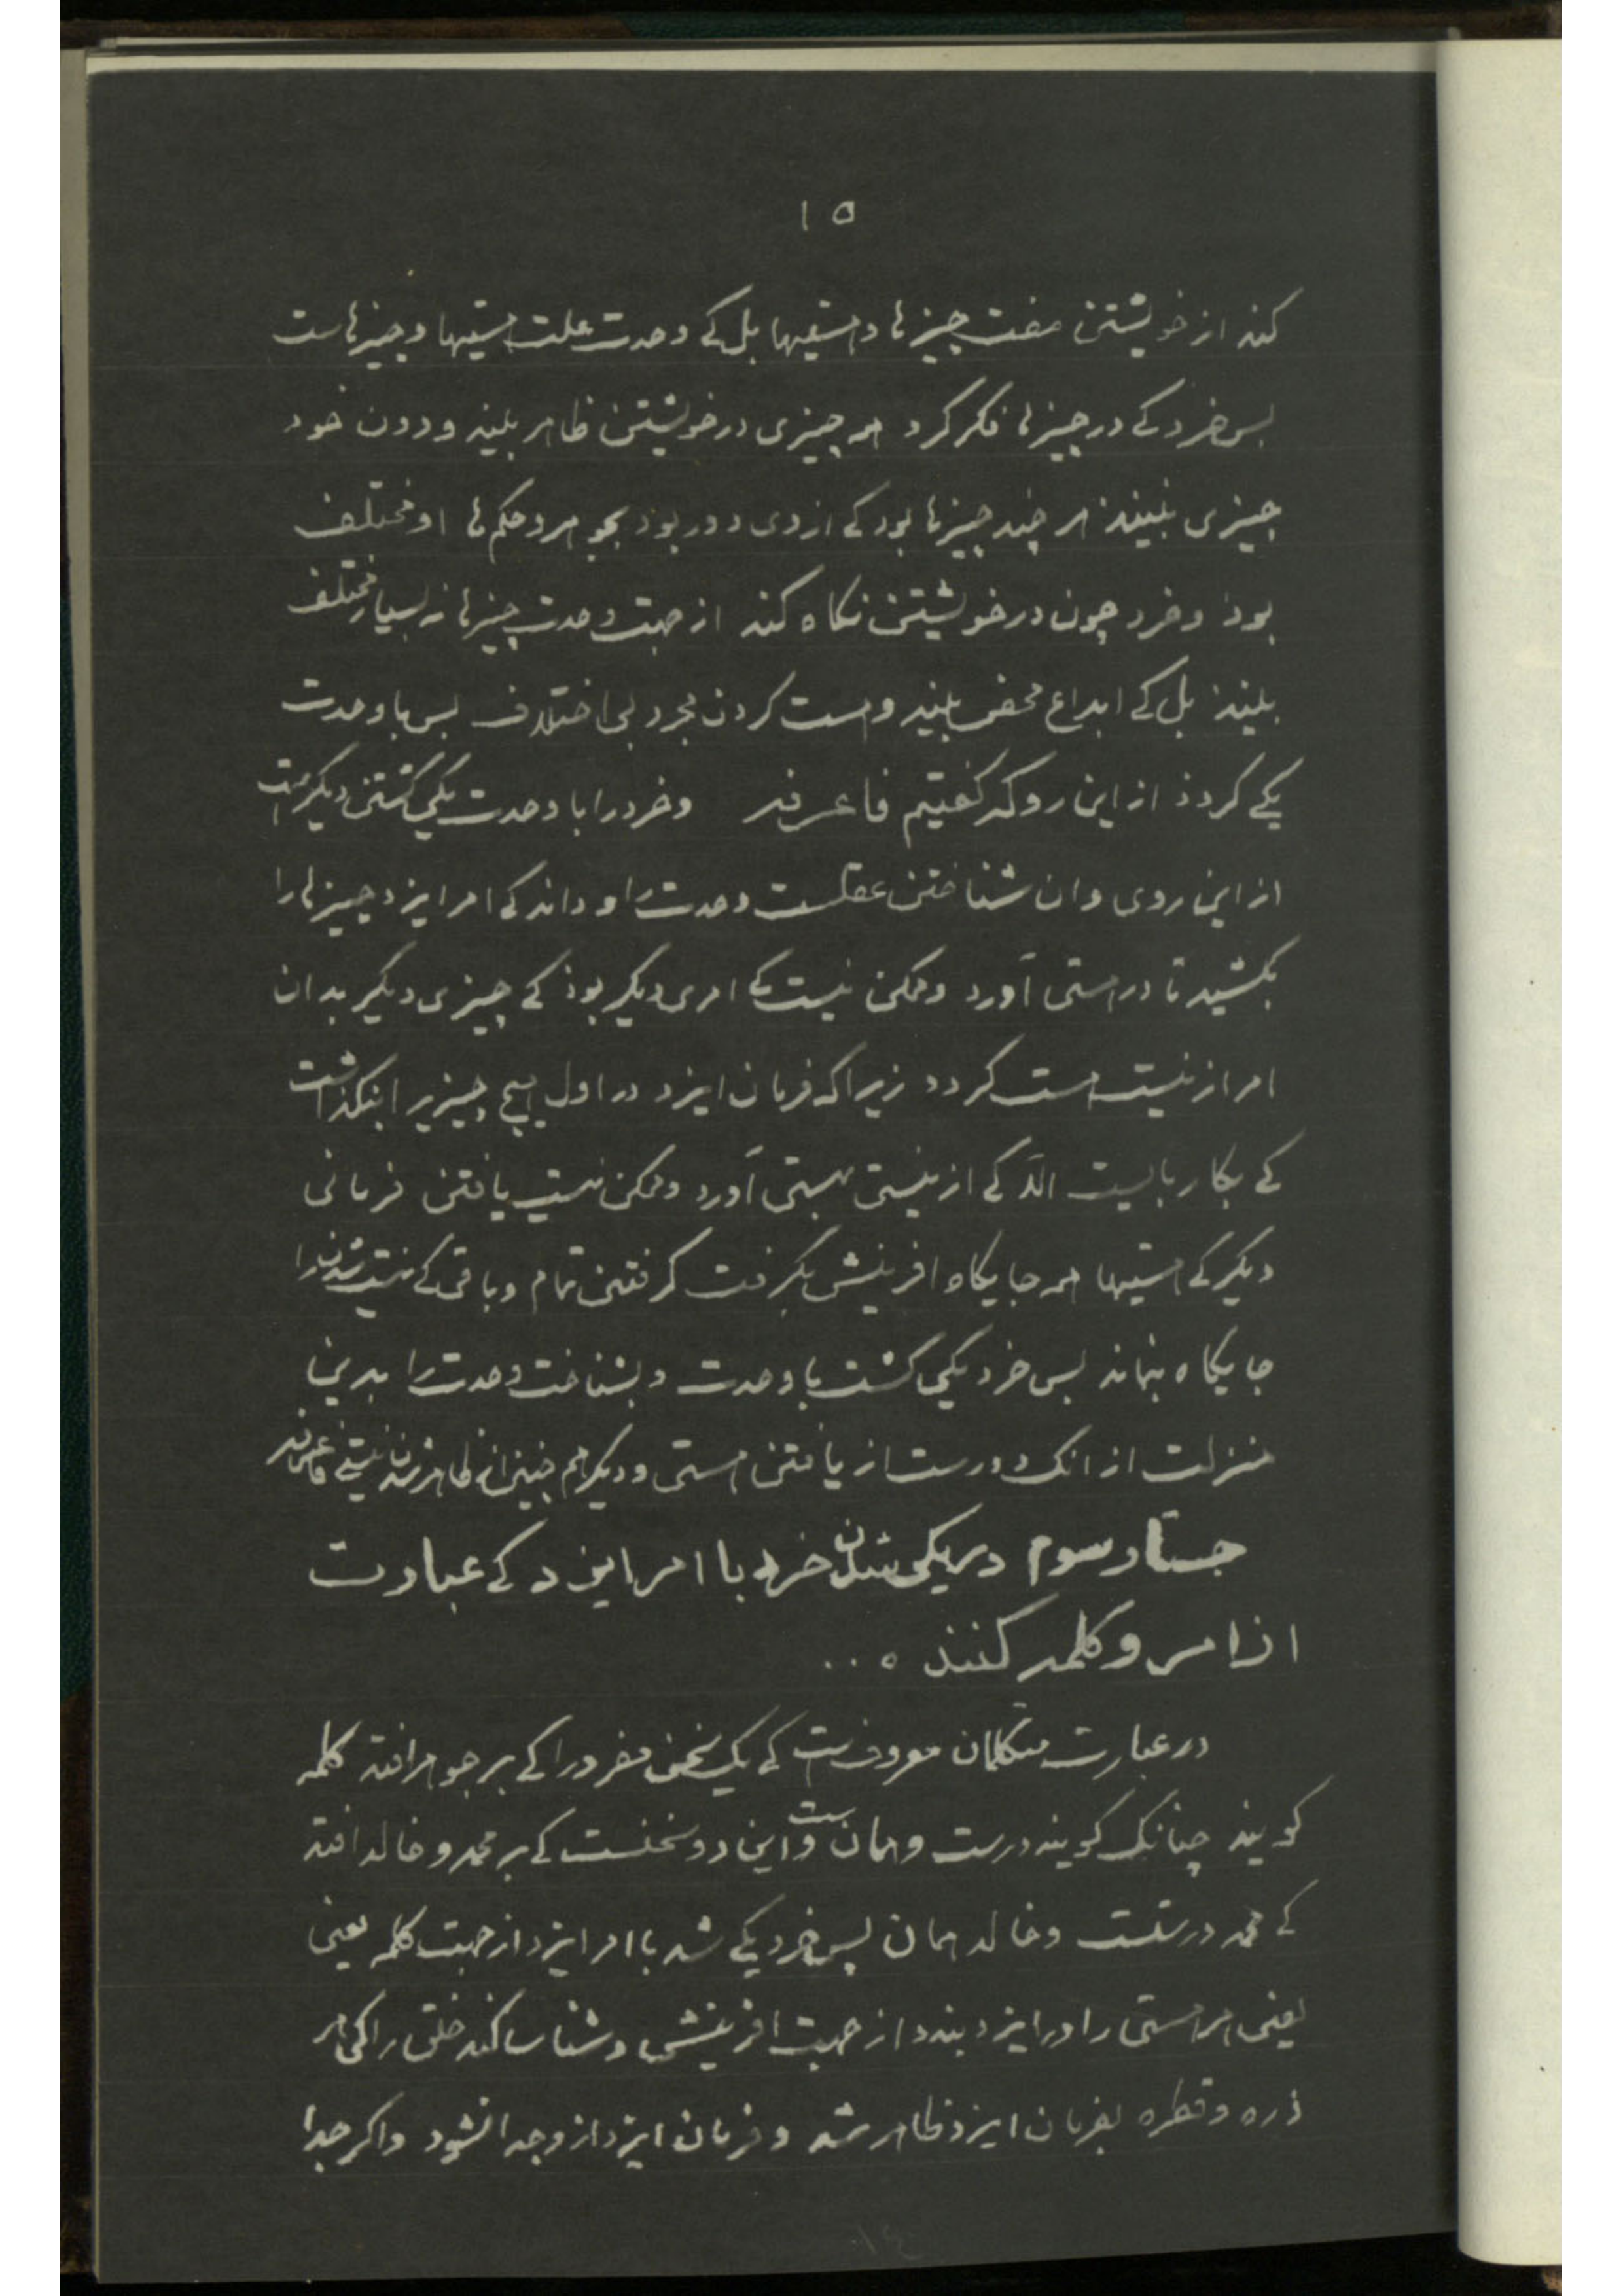 ۱۵
کند از خویشتن صفت چیزها و هستیها بل کے وحدت علت هستیها و چیزهاست
پس خرد کے در چیزها فکر کرد همه چیزی در خویشتن ظاهر بیند و دون خود
چیزی نبیند هر چند چیزها بود کے از وی دور بود بجوهر و حکم‌ها او مختلف
بوذ و خرد چون در خویشتن نکاه کند از جهت وحدت چیزها نه بسیار مختلف
بیند بل کے ابداع محض بیند و هست کردن مجرد بی اختلاف پس با وحدت
یکے کردذ از این رو که کفتیم فاعرفه وخرد را با وحدت یکی کشتن دیکرست
از این روی وان شناختن عقلست وحدت را و داند کے امر ایزد چیزها را
بکشید تا در هستی آورد وممکن نیست کے امری دیکر بوذ کے چیزی دیکر بدان
امر از نیست هست کردد زیراکه فرمان ایزد در اول هیچ چیزیرا بنکذاشت
کے بکار بایست الا کے از نیستی بهستی آورد وممکن نیست یافتن فرمانی
دیکر کے هستیها همه جایکاه افرینش بکرفت کرفتن تمام وباقی کے هست شدنرا
جایکاه بنماند پس خرد یکی کشت با وحدت و بشناخت وحدت را بدین
منزلت از انک دورست از یافتن هستی و دیکر هم چنین از ظاهر شدن نیستی فاعرفه
جستار سوم در یکی شدن خرد با امر ایزد کے عبارت
از امر و کلمه کنند ه..
در عبارت متکلمان معروفست کے یک سخن مفرد را کے بر جوهر افتد کلمه
کویند چنانک کویند درست و همان ست و این دو سخنست کے بر محمد و خالد افتد
کے محمد درستست و خالد همان پس خرد یکے شد با امر ایزد از جهت کلمه یعنی
یعنی هر هستی را در ایزد بندد از جهت افرینش و شناسا کند خلق را کی هر
ذره و قطره بفرمان ایزد ظاهر شد و فرمان ایزد ازو جدا نشود و اکر جدا